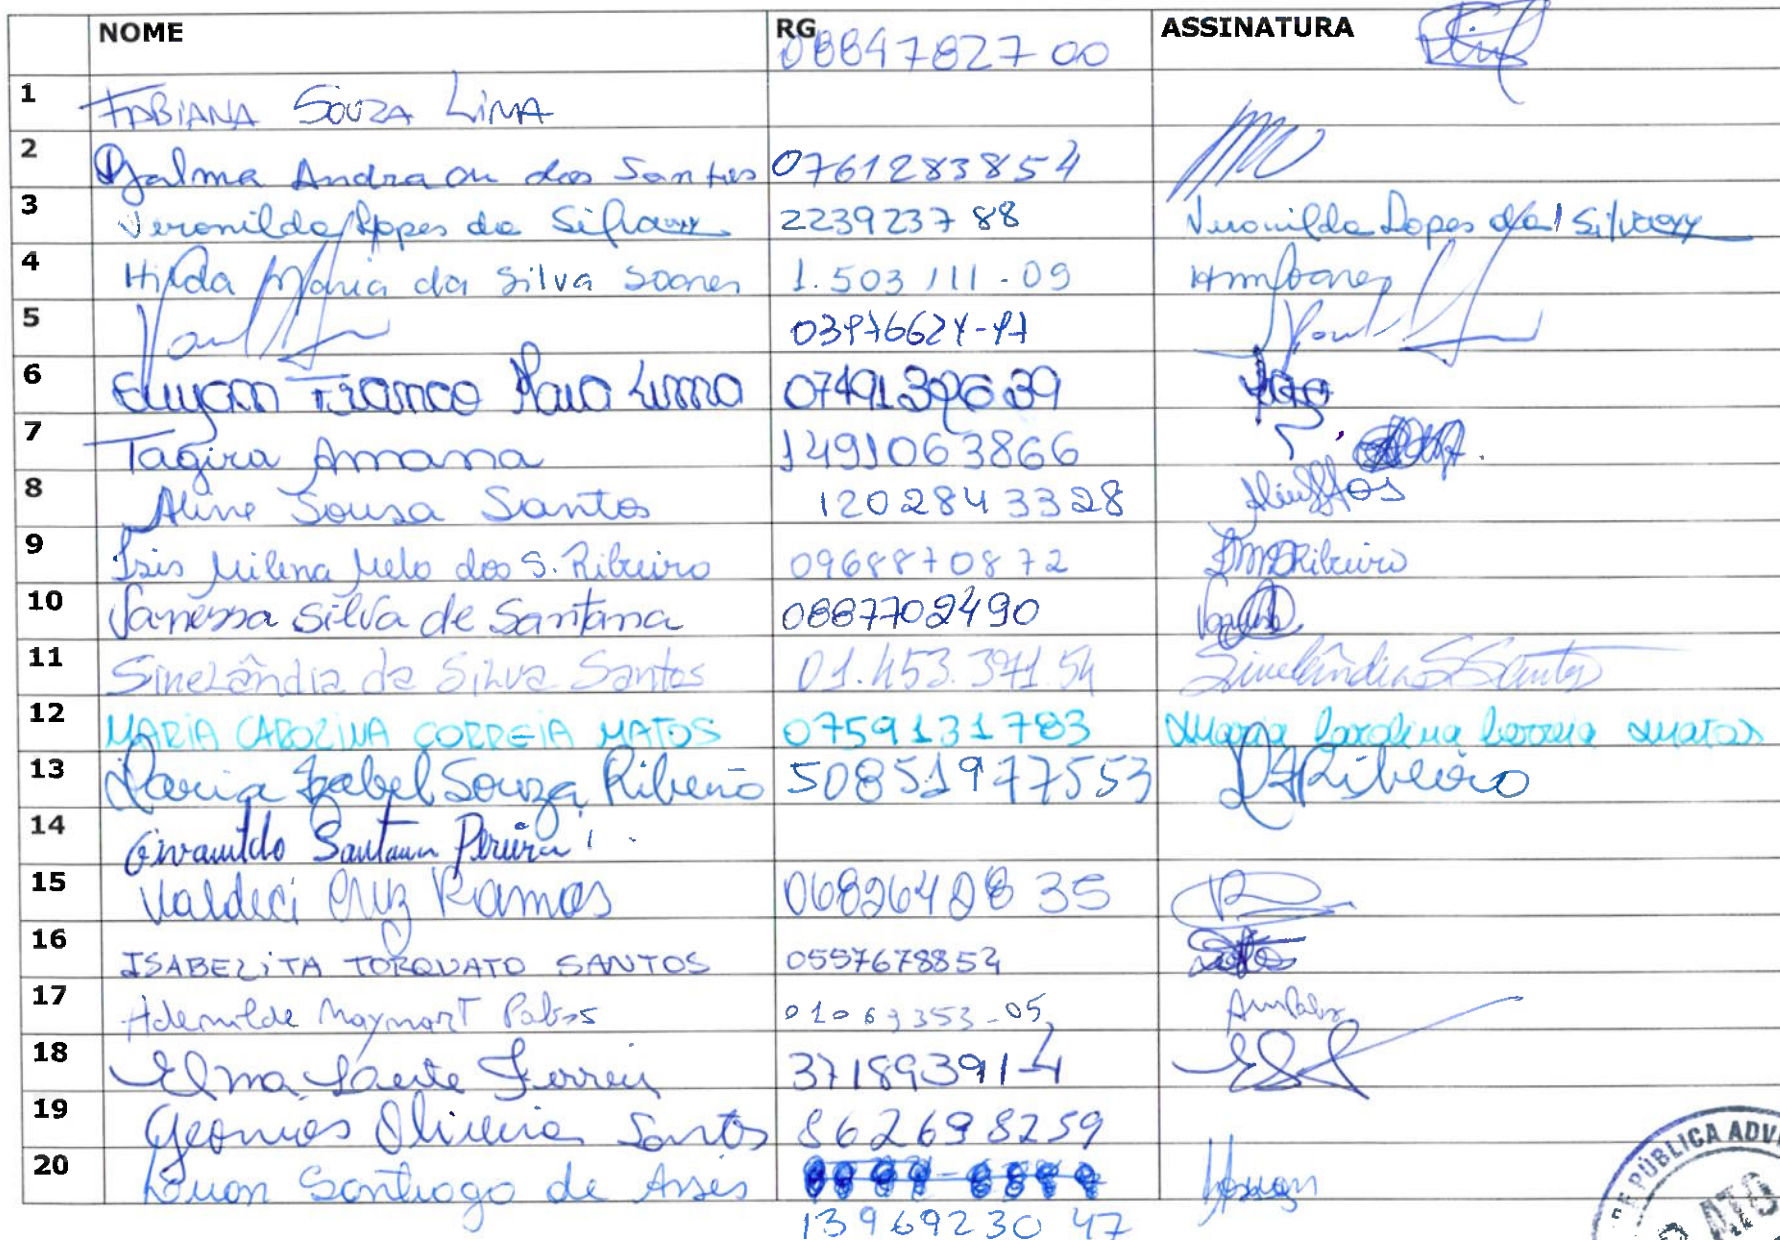 NOME RG ASSINATURA
0884782700
1 FABIANA SOUZA LIMA
2 Djalma Andra dos Santos 0761283854
3 Veronilda Lopes da Silva 2239237 88 Veronilda Lopes da Silva
4 Hilda Maria da Silva Soares 1.503 111-09 HmSoares
5
6 Franco Maia Lima
7 Tagira Amana 1491063866
8 Aline Sousa Santos 1202843328
9 Isis Milena Melo dos S. Ribeiro 0968870872 Ribeiro
10 Vanessa Silva de Santana 0887702490
11 Sinelândia da Silva Santos 01.453.371.54 Sinelândia S Santos
12 MARIA CAROLINA CORREIA MATOS 0759131783 Maria Carolina Correia Matos
13 Maria Izabel Souza Ribeiro 50851977553 Ribeiro
14 Givanildo Santana Pereira
15 Valdeci Cruz Ramos 0682642835
16 ISABELITA TORQUATO SANTOS 0557678852
17 Ademilde Maynart Pabos 01069353-05
18 Elma Ferreira 371893914
19 Geonias Oliveira Santos 862698259
20 Luan Santiago de Assis
13969230 47
DE PÚBLICA ADV
ATO